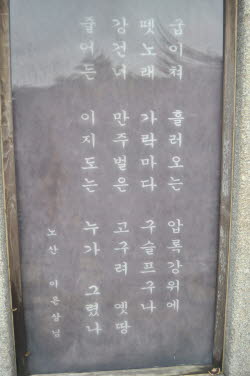 굽이쳐 흘러오는 압록강위에
뗏노래 가락마다 구슬프구나
강건너 만주벌은 고구려 옛땅
줄어든 이지도는 누가 그렸나
노산 이은상님